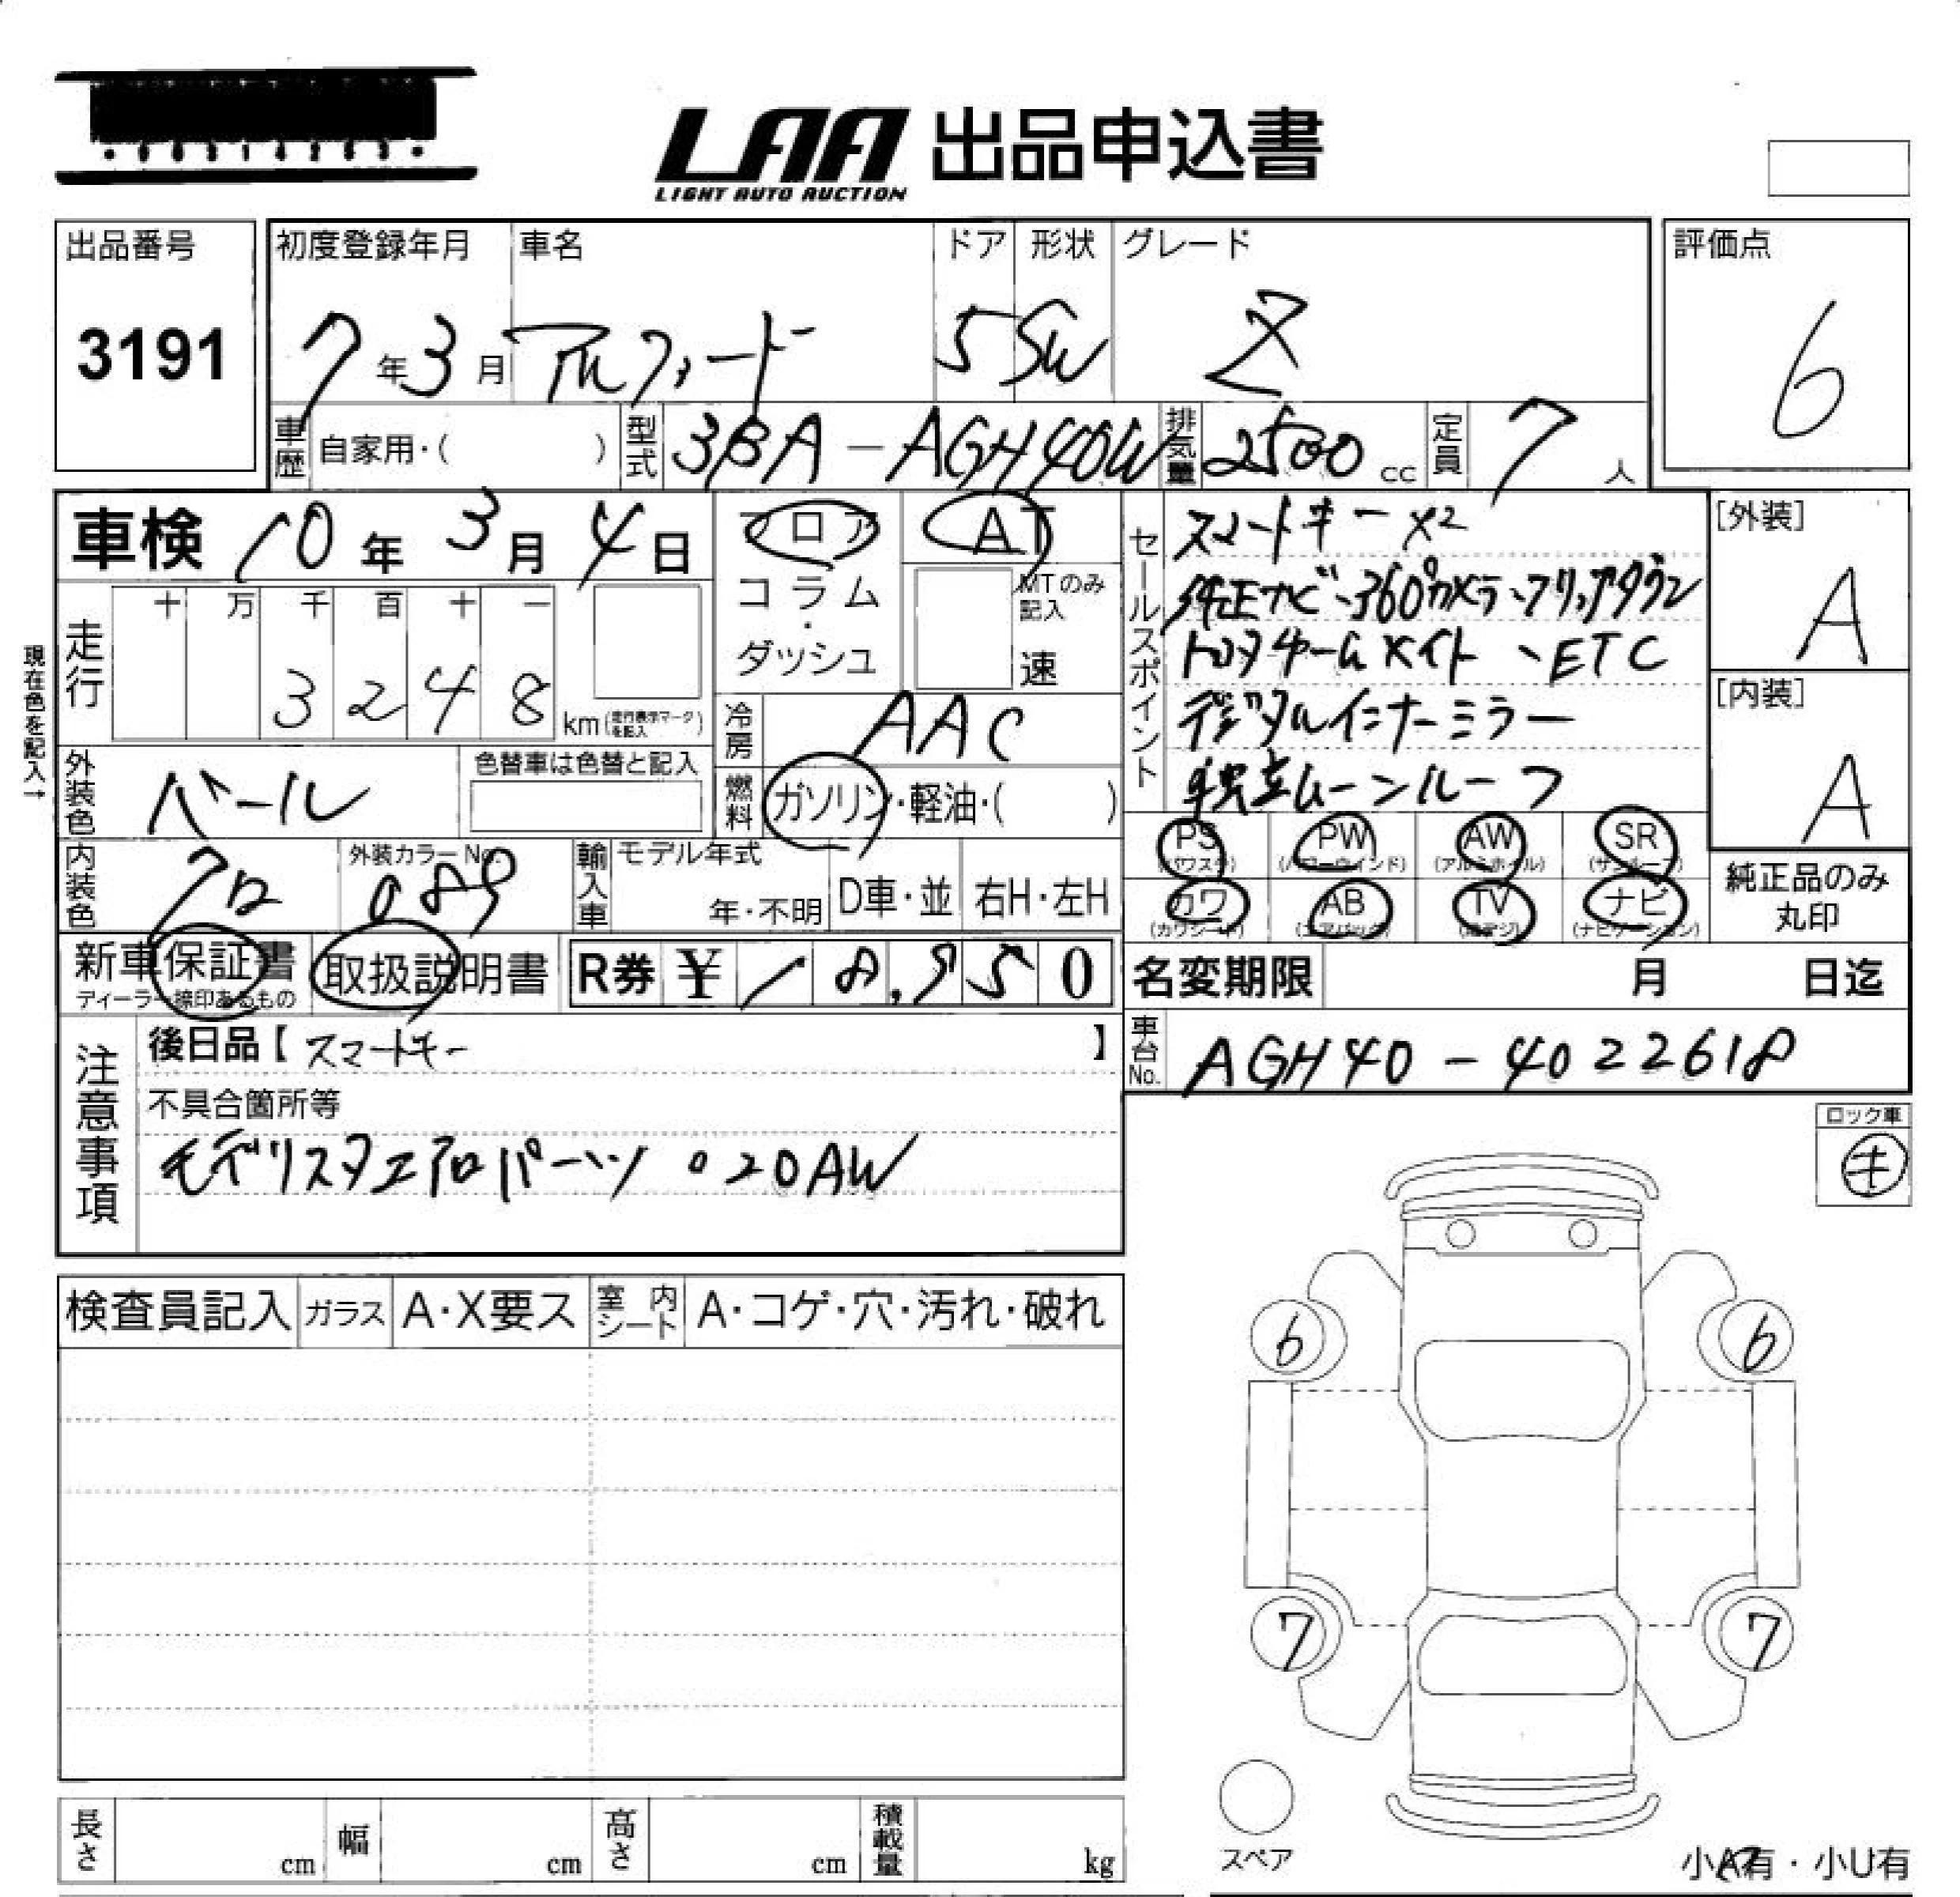 LAA 出品申込書
LIGHT AUTO AUCTION
出品番号
3191
初度登録年月
7年3月
車名
アルファード
ドア
5
形状
SW
グレード
Z
評価点
6
車歴 自家用・( )
型式 3BA-AGH40W
排気量 2500cc
定員 7人
車検 10年3月4日
フロア
コラム
・
ダッシュ
AT
MTのみ記入
速
現在色を記入→
走行
十 万 千 百 十 一
3 2 4 8 km(走行表示マークを記入)
冷房 AAC
外装色 パール
色替車は色替と記入
燃料 ガソリン・軽油・( )
内装色 クロ
外装カラーNo. 089
輸入車 モデル年式
年・不明
D車・並 右H・左H
セールスポイント
スマートキー×2
純正ナビ、360°カメラ、フリップダウン
トヨタチームメイト、ETC
デジタルインナーミラー
独立ムーンルーフ
[外装]
A
[内装]
A
PS (パワステ)
PW (パワーウインド)
AW (アルミホイル)
SR (サンルーフ)
カワ (カワシート)
AB (エアバック)
TV (地デジ)
ナビ (ナビゲーション)
純正品のみ丸印
新車保証書
ディーラー捺印あるもの
取扱説明書
R券 ¥18,950
名変期限 月 日迄
車台No. AGH40-4022618
注意事項
後日品【スマートキー 】
不具合箇所等
モデリスタエアロパーツ。20AW
ロック車
キ
検査員記入
ガラス A・X要ス
室内シート A・コゲ・穴・汚れ・破れ
6 6
7 7
スペア
長さ cm
幅 cm
高さ cm
積載量 kg
小A有・小U有